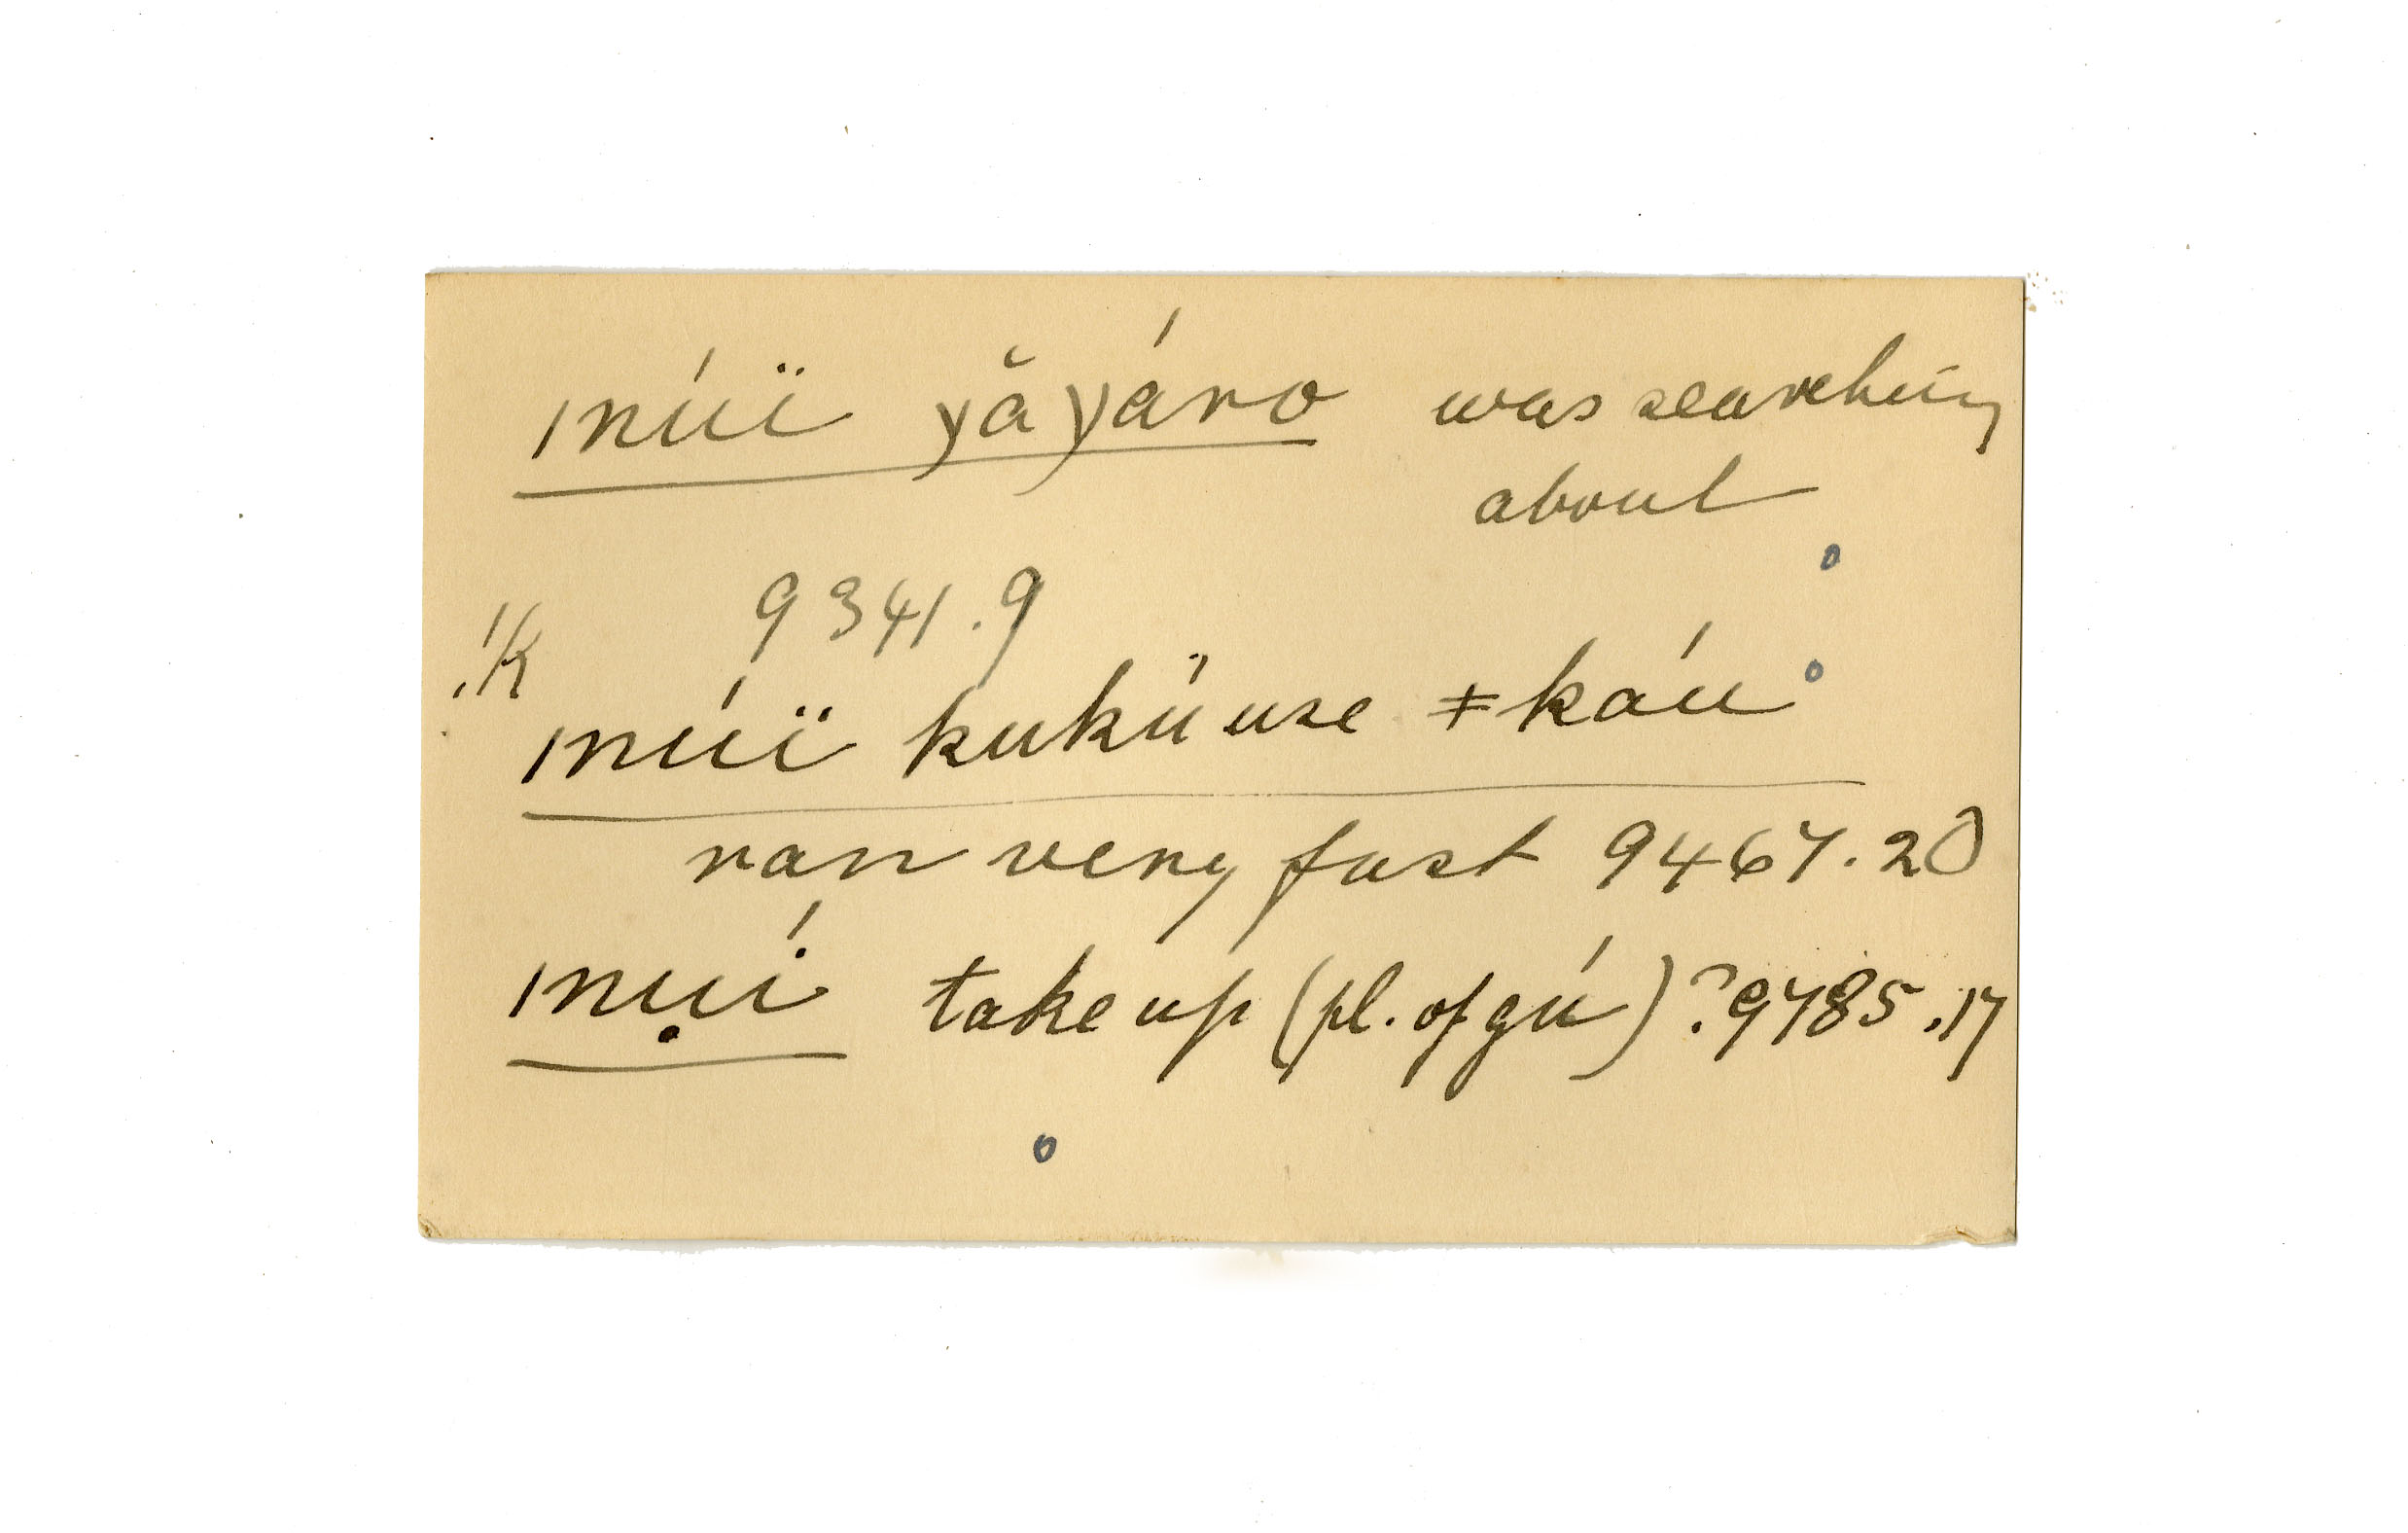 ı núï y̆ăyáro was searching
about
9341.9
!k
ı núï kukú use ǂkáu
ran very fast 9467.20
ı nụí take up (pl. of gú)? 9785.17